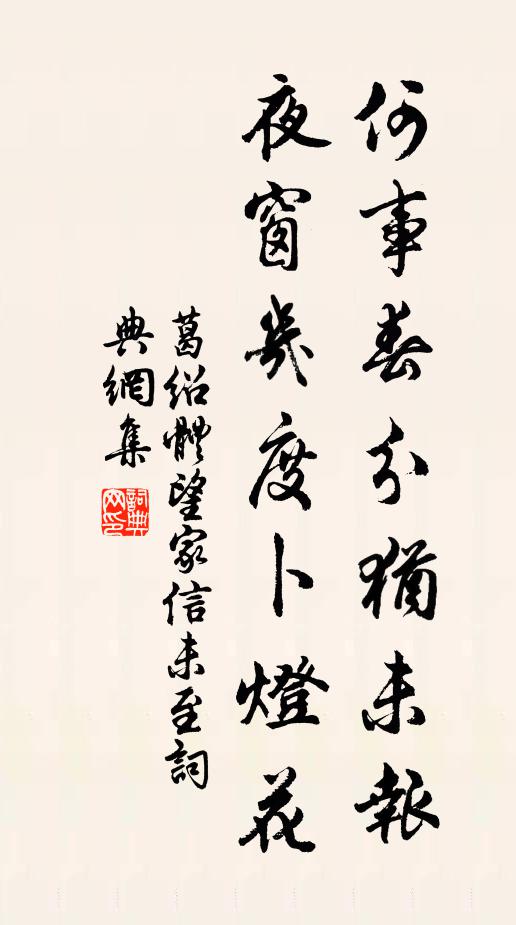 何事春分猶未報
夜窗幾度卜燈花
葛紹體望家信未至詞
典網集
詞典網印